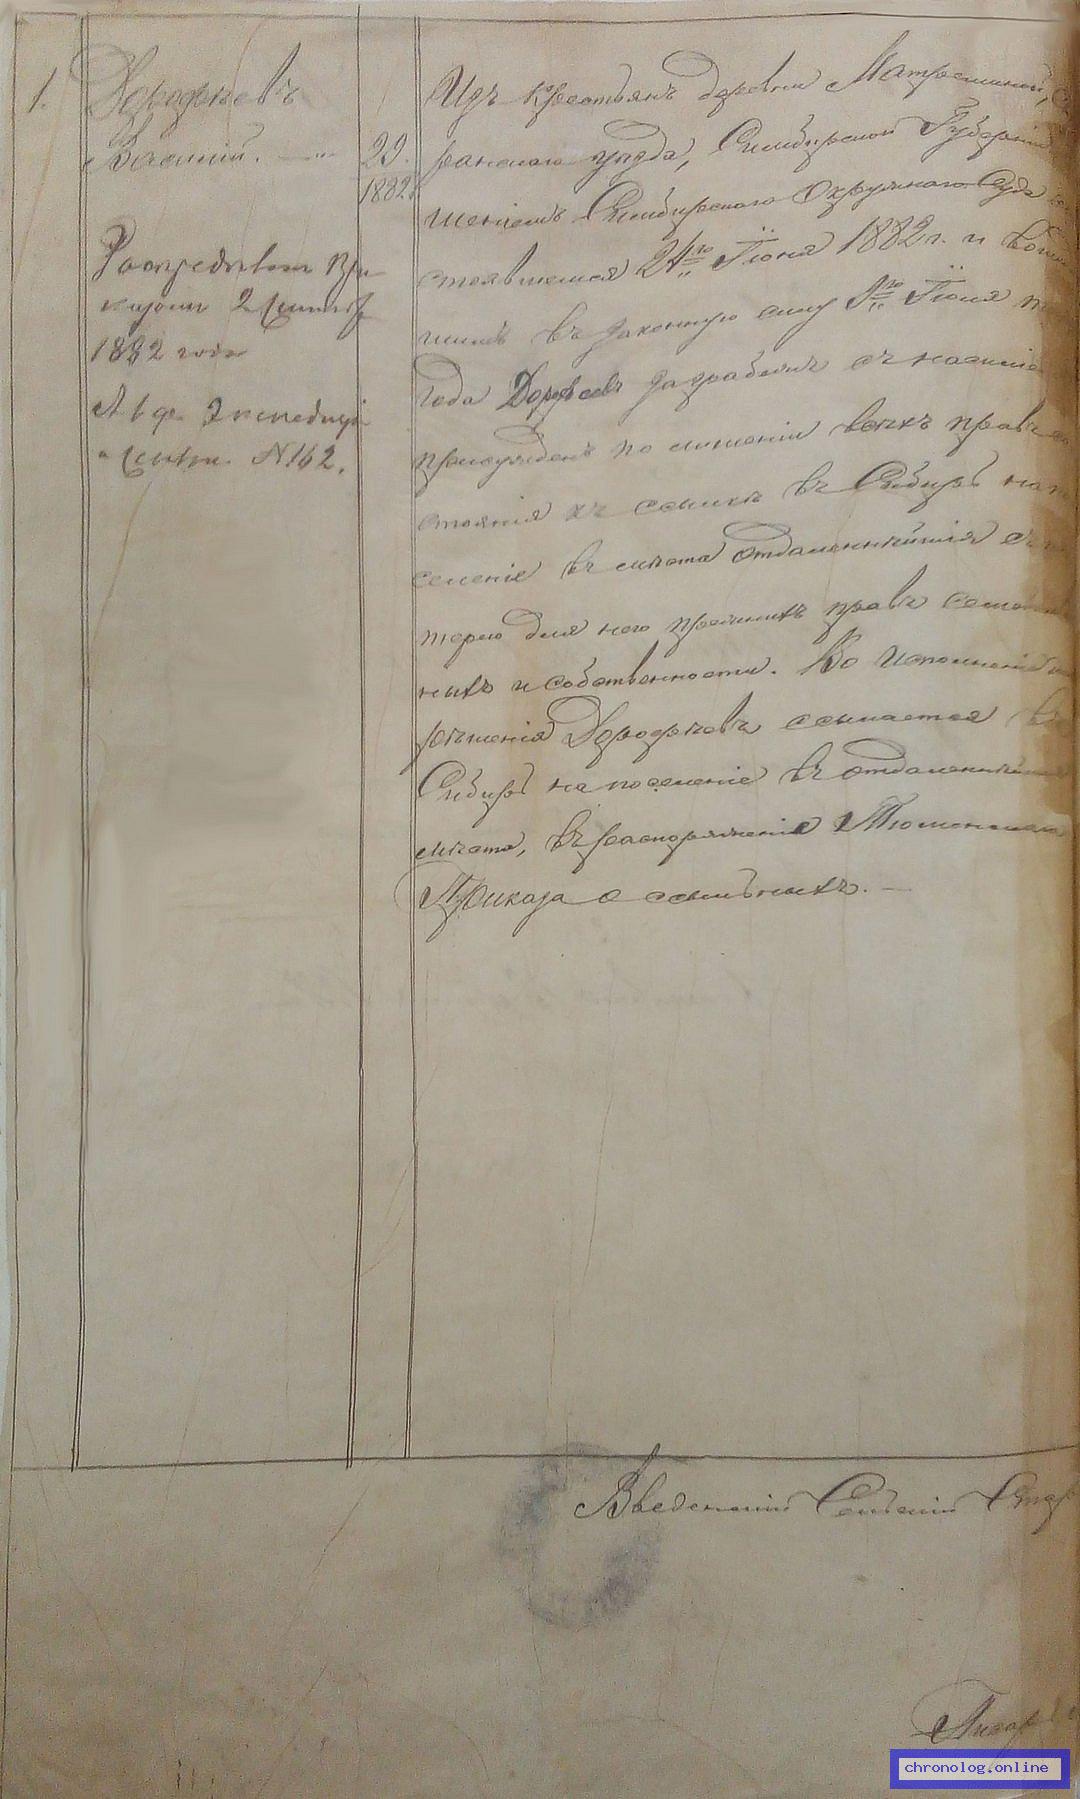 1.
Дорофѣевъ
Василій.
Распредѣленъ При-
казомъ 2 Сентяб
1882 года
№162.
29.
1882.
Изъ крестьянъ деревни Матрешиной,
ранскаго уѣзда, Симбирской Губерніи
шеніемъ Симбирскаго Окружнаго Суда
стоявшемся 24го Іюня 1882 г. и вош
шимъ въ законную силу Іюля
года Дорофѣевъ за грабежъ съ насиліе
присужденъ по лишеніи всѣхъ правъ со
стоянія къ ссылкѣ въ Сибирь на по
селеніе въ мѣста отдаленнѣйшія съ по
терею для него прежнихъ правъ семей
ныхъ и собственности. Во исполненіе
рѣшенія Дорофѣевъ ссылается въ
Сибирь на поселеніе въ отдаленнѣйшія
мѣста, въ распоряженіе Тюменскаго
Приказа о ссыльныхъ.
Введенскій Сельскій Стар
Писар
chronolog.online